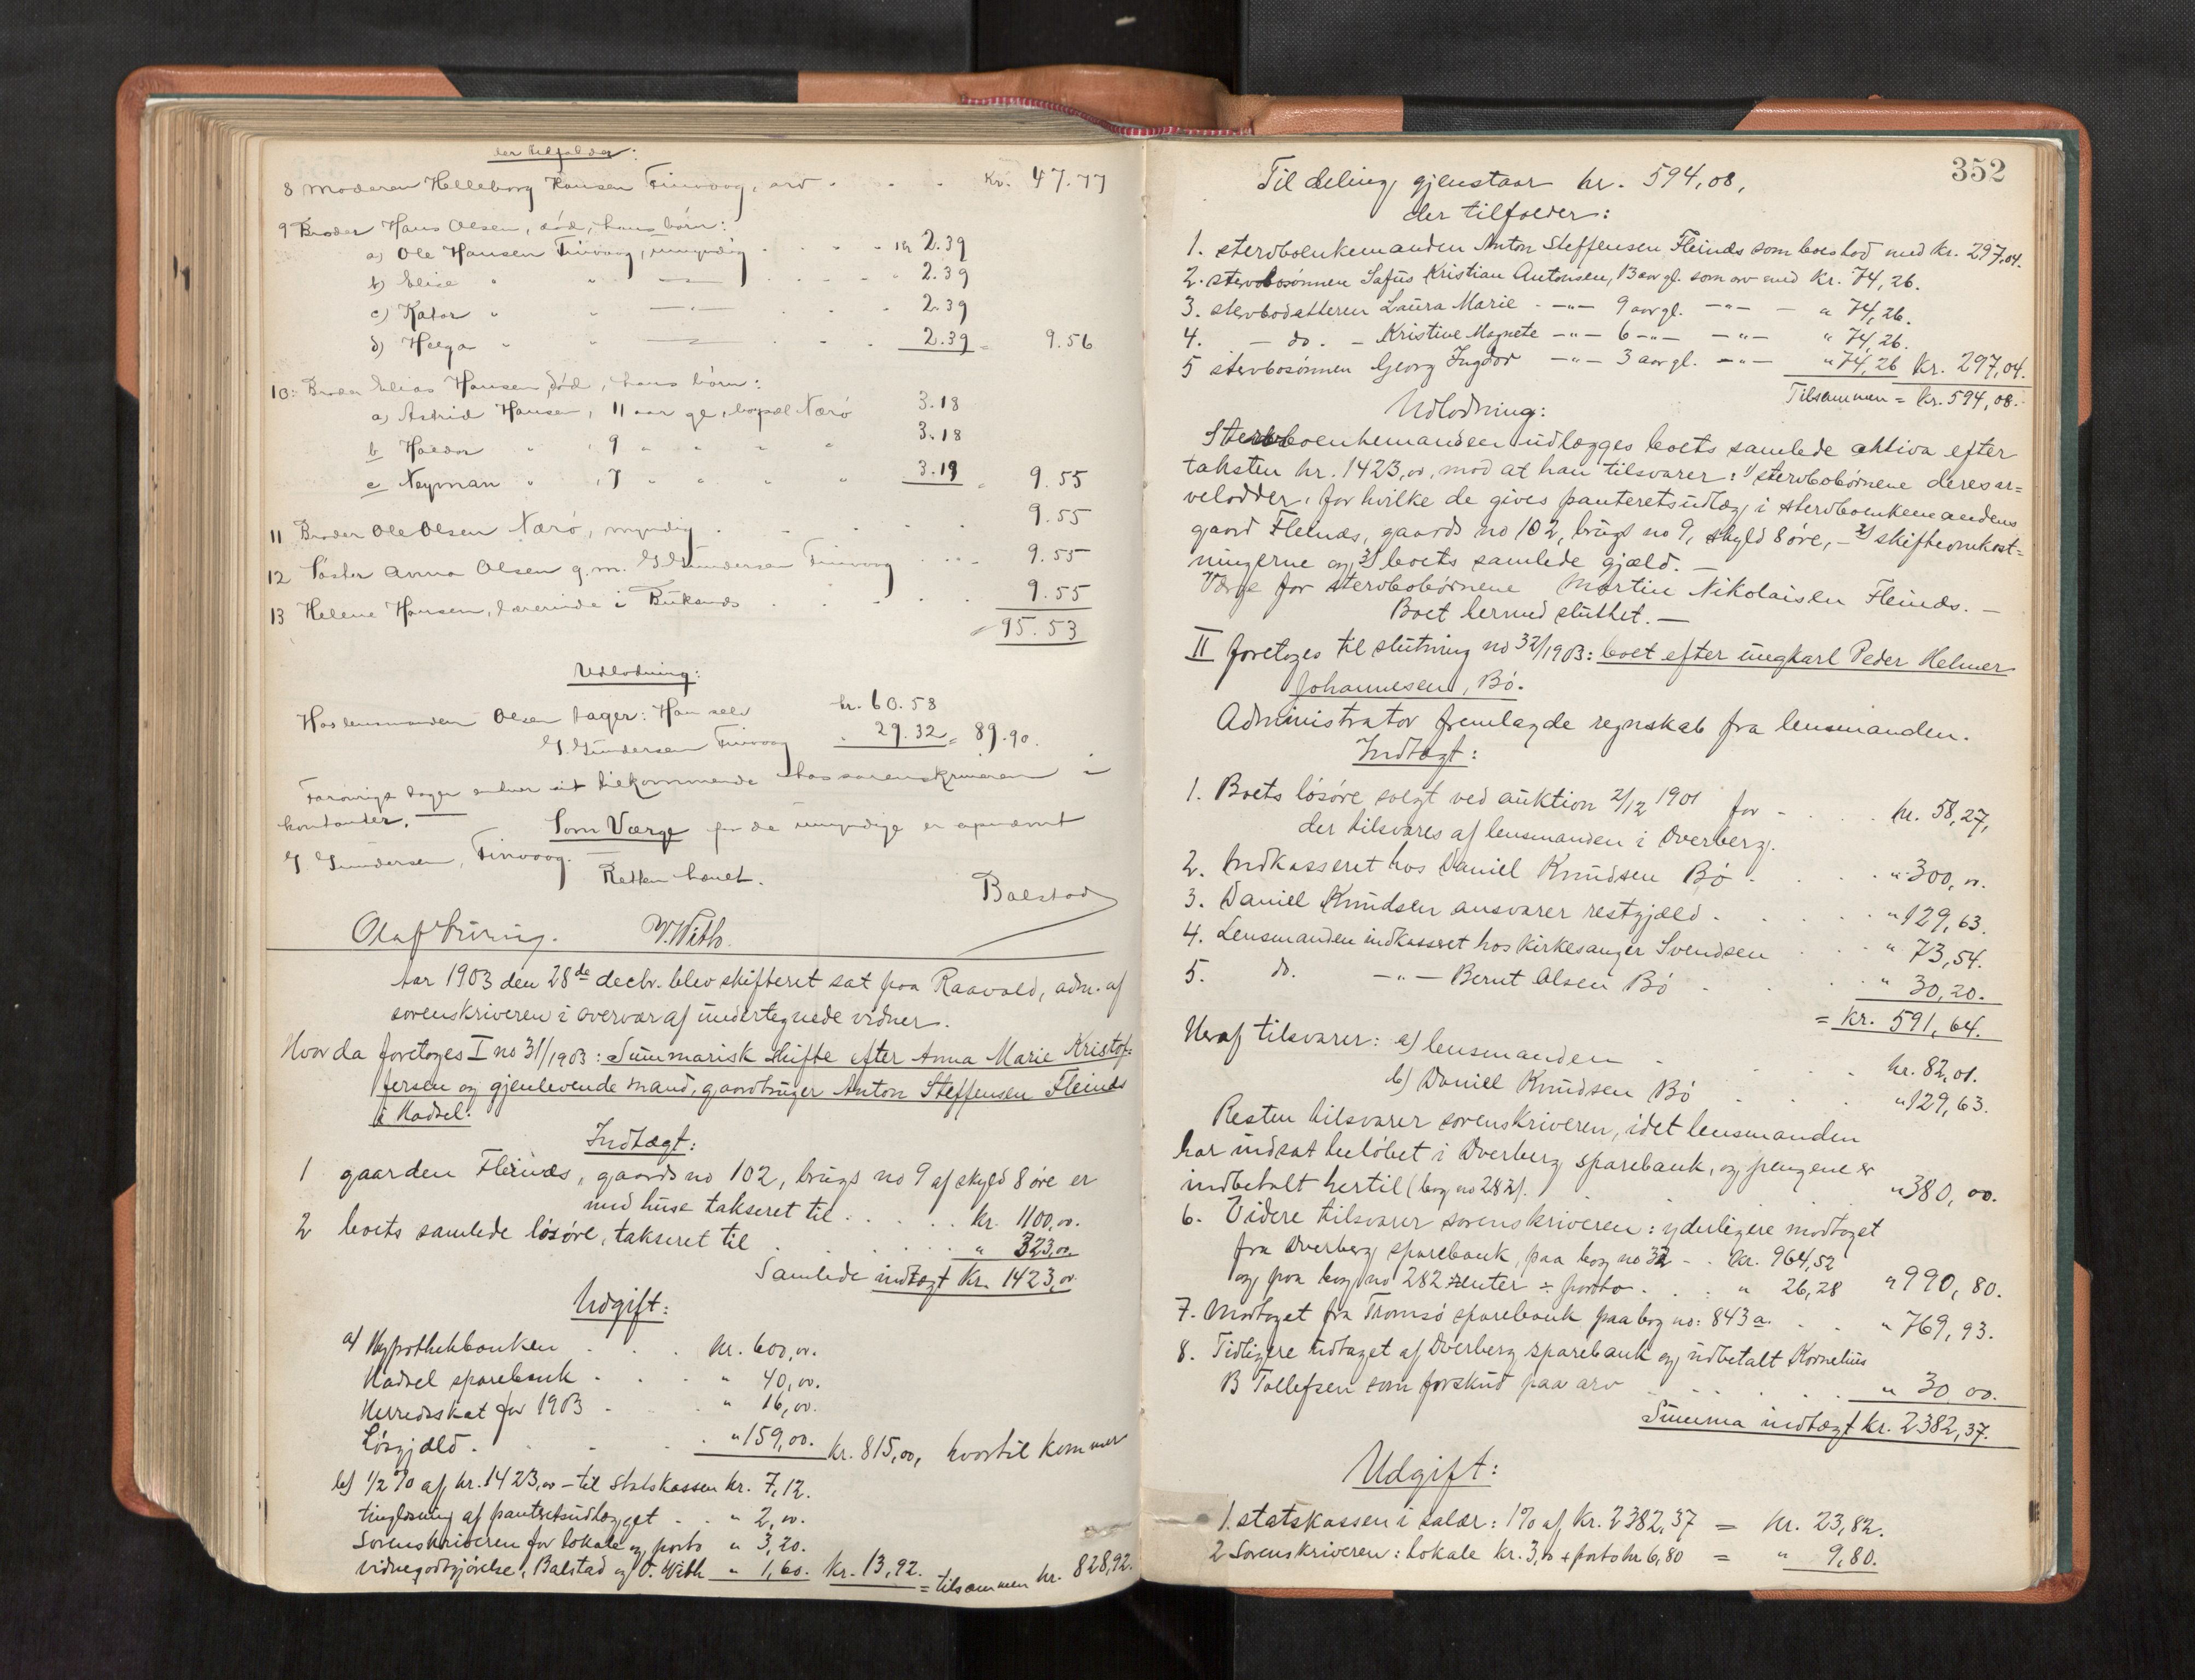 der tilfalder:
8 Moderen Helleborg Hansen Finvaag, arv . . . Kr. 47.77
9 Broder Hans Olsen, död, hans börn:
a) Ole Hansen Finvaag, umyndig . . . kr 2.39
b) Elise " " —"— . . . " 2.39
c) Kator " " —"— . . . 2.39
d) Helga " " —"— . . . 2.39 = 9.56
10: Broder Elias Hansen, död, hans börn:
a) Astrid Hansen, 11 aar gl, bopæl Nærö 3.18
b Haldor " , 9 " " " " 3.18
c Neyman " , 7 " " " " 3.19 = 9.55
11 Broder Ole Olsen Nærö, myndig . . . 9.55
12 Söster Anna Olsen g.m. G Gundersen Finvaag . . . 9.55
13 Helene Hansen, lærerinde i Buksnds . . . 9.55
= 95.53
Udlodning:
Hos lensmanden Olsen tager: Han selv kr. 60.58
G. Gundersen Finvaag " 29.32 = 89.90.
Forövrigt tager enhver sit tilkommende hos sorenskriveren i
kontanter.
Som Værge for de umyndige er opnævnt
G Gundersen, Finvaag.
Retten hævet.
Balstad
Olaf During. V. With.
Aar 1903 den 28de decbr. blev skifteret sat paa Raavold, adm. af
sorenskriveren i overvær af undertegnede vidner.
Hvor da foretoges I no 31/1903: Summarisk skifte efter Anna Marie Kristof=
fersen og gjenlevende mand, gaardbruger Anton Steffensen Fleinæs
i Hadsel.
Indtægt:
1 gaarden Fleinæs, gaards no 102, brugs no 9 af skyld 8 öre er
med huse takseret til . . . . . kr. 1100,00.
2 boets samlede lösöre, takseret til . . . . . " 323,00
Samlede indtægt kr. 1423,00
Udgift:
a) Hypothekbanken . . . kr. 600,00.
Hadsel sparebank . . . " 40,00.
Herredsskat for 1903 . . . " 16,00.
Lösgjæld . . . . " 159,00. kr. 815,00, hvortil kommer
b) 1/2 % af kr. 1423,00 – til statskassen kr. 7,12.
tinglæsning af panteretsudlægget . . " 2,00.
Sorenskriveren for lokale og porto " 3,20.
vidnegodtgjörelse, Balstad og O. With " 1,60. kr. 13,92. = tilsammen kr. 828,92.
352
Til deling gjenstaar kr. 594,08,
der tilfalder:
1. stervboenkemanden Anton Steffensen Fleinæs som boeslod med kr. 297,04.
2. stervbosönnen Safus Kristian Antonsen, 13 aar gl. som arv med kr. 74,26.
3. stervbodatteren Laura Marie —"— 9 aar gl. —"— " 74,26.
4. — do. — Kristine Magnete —"— 6 —"— —"— " 74,26.
5 stervbosönnen Georg Ingdor —"— 3 aar gl. —"— " 74,26 kr. 297,04.
Tilsammen = kr. 594,08.
Udlodning:
Stervboenkemanden udlægges boets samlede aktiva efter
taksten kr. 1423,00, mod at han tilsvarer: 1) stervbobörnene deres ar=
velodder, for hvilke de gives panteretsudlæg i stervboenkemandens
gaard Fleinæs, gaards no 102, brugs no 9, skyld 8 öre, – 2) skifteomkost=
ningerne og 3) boets samlede gjæld. —
Værge for stervbobörnene Martin Nikolaisen Fleinæs. —
Boet hermed sluttet. —
II foretoges til slutning no 32/1903: boet efter ungkarl Peder Helmer
Johannesen, Bö.
Administrator fremlagde regnskab fra lensmanden.
Indtægt:
1. Boets lösöre solgt ved auktion 2/12 1901 for . . . kr. 58,27,
der tilsvares af lensmanden i Dverberg.
2. Indkasseret hos Daniel Knudsen Bö . . . . " 300,00.
3. Daniel Knudsen ansvarer restgjæld . . . . . " 129,63.
4. Lensmanden indkasseret hos kirkesanger Svendsen . . . " 73,54.
5. do. —"— Bernt Olsen Bö . . . " 30,20.
= kr. 591,64.
Heraf tilsvarer: a) lensmanden . . . kr. 82,01.
b) Daniel Knudsen Bö . . . " 129,63.
Resten tilsvarer sorenskriveren, idet lensmanden
har indsat belöbet i Dverberg sparebank, og pengene er
indbetalt hertil (bog no 282). . . . " 380,00.
6. Videre tilsvarer sorenskriveren: yderligere modtaget
fra Dverberg sparebank, paa bog no 32 . . kr. 964,52
og paa bog no 282 renter ÷ porto . . . " 26,28 " 990,80.
7. Modtaget fra Tromsö sparebank paa bog no: 843 a. . . " 769,93.
8. Tidligere udtaget af Dverberg sparebank og udbetalt Kornelius
B Tollefsen som forskud paa arv . . . . . " 30,00.
Summa indtægt kr. 2382,37.
Udgift:
1. statskassen i salær: 1% af kr. 2382,37 = kr. 23,82.
2 Sorenskriveren: lokale kr. 3,00 + porto kr 6,80 = " 9,80.